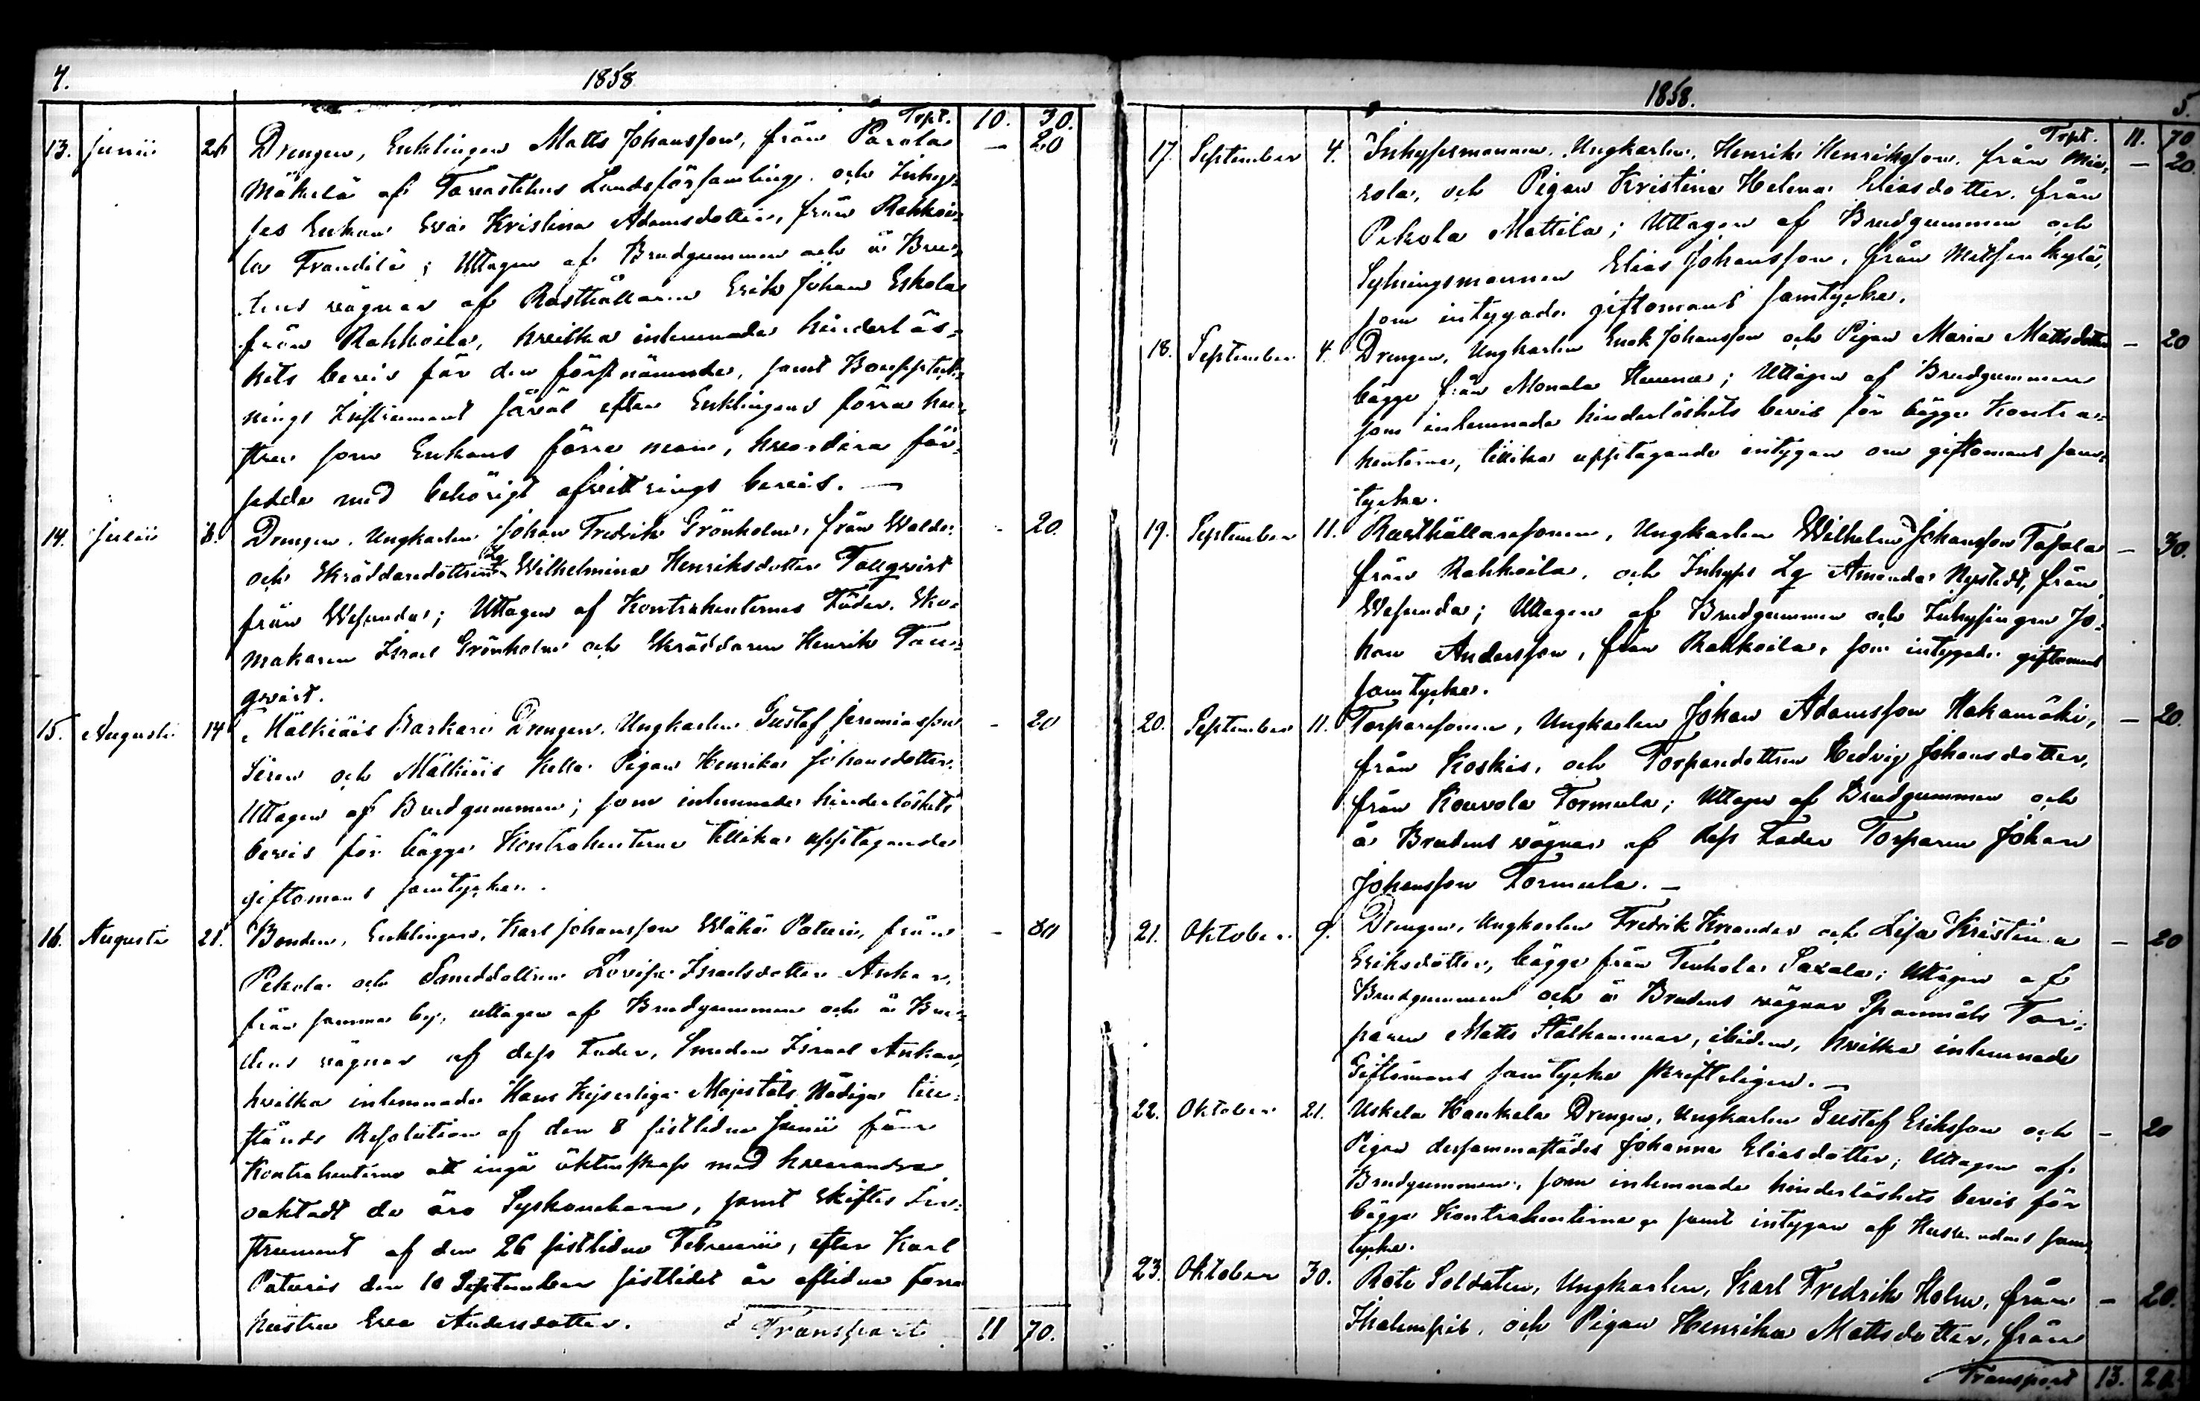 4. 1858.
Trpt. 10. 30.
13. Junii 26 Drengen, Enklingen Matts Johansson, från Parola — 20
Mäkelä af Tavastehus Landsförsamling och Inhy-
ses Enkan Eva Kristina Adamsdotter, från Rahkoi-
la Frandila; Uttagen af Brudgummen och å Bru-
dens vägnar af Rusthållaren Erik Johan Eskola
från Rahkoila, hvilka inlemnade hinderlös-
hets bevis för den förstnämnde, samt Bouppteck-
nings Instrument såväl efter Enklingens förra hu-
stru som Enkans förre man, hvardera för-
sedde med behörigt afvittrings bevis. —
14. Julii 3. Drengen, Ungkarlen Johan Fredrik Grönholm, från Walde - 20.
och Skräddaredottren Lg Wilhelmina Henriksdotter Tallqvist
från Wesunda; Uttagen af Kontrahenternes Fäder, Sko-
makaren Israel Grönholm och Skräddaren Henrik Tall-
qvist.
15. Augusti 14 Mälkiäis Karkari Drengen, Ungkarlen Gustaf Jeremiasson - 20
Siren och Mälkiäis Kella Pigan Henrika Johansdotter.
Uttagen af Brudgummen; som inlemnade hinderlöshets
bevis för bägge Kontrahenterne tillika upptagande
giftomans samtycke.
16. Augusti 21. Bonden, Enklingen, Karl Johansson Wähä Paturi, från - 80
Pekola och Smeddottren Lovisa Israelsdotter Ankar,
från samma by, uttagen af Brudgummen och å Bru-
dens vägnar af dess Fader, Smeden Israel Ankar,
hvilka inlemnade Hans Kejserliga Majestäts Nådiga till-
stånds Resolution af den 8 sistledne Junii för
Kontrahenterne att ingå äktenskap med hvarandra
oaktadt de äro Syskonebarn, samt Skiftes In-
strument af den 26 sistledne Februarii, efter Karl
Paturis den 10 September sistledet år aflidna förra
hustru Eva Andersdotter. Transport 11 70.
1858. 5.
Trpt. 11. 70
17. September 4. Inhysesmannen, Ungkarlen, Henrik Henriksson, från Mie- — 20.
rola, och Pigan Kristina Helena Eliasdotter, från
Pekola Mattila; Uttagen af Brudgummen och
Sytningsmannen Elias Johansson, från Metsenkylä,
som intygade giftomans samtycke.
18. September 4. Drengen, Ungkarlen Enok Johansson och Pigan Maria Mattsdotter — 20
bägge från Monala; Uttagen af Brudgummen
som inlemnade hinderlöshets bevis för bägge Kontra-
henterne, tillika upptagande intygan om giftomans sam-
tycke.
19. September 11. Rusthållaresonen, Ungkarlen Wilhelm Johansson Tapola — 30.
från Rahkoila, och Inhyses Lg Amanda Nystedt, från
Wesunda; Uttagen af Brudgummen och Inhysingen Jo-
han Andersson, från Rahkoila, som intygade giftomans
samtycke.
20. September 11. Torparesonen, Ungkarlen Johan Adamsson Hakamäki, — 20.
från Koskis, och Torparedottren Hedvig Johansdotter,
från Kouvola Tormula; Uttagen af Brudgummen och
å Brudens vägnar af dess Fader Torparen Johan
Johansson Tormula. —
21. Oktober 9. Drengen, Ungkarlen Fredrik Kreander och Lisa Kristina — 20
Eriksdotter, bägge från Saxala; Uttagen af
Brudgummen och å Brudens vägnar Spannmåls Tor-
paren Matts Stålhammar, ibidem, hvilka inlemnade
Giftomans samtycke skrifteligen. —
22. Oktober 21. Uskela Haukela Drengen, Ungkarlen Gustaf Eriksson och — 20
Pigan dersammastädes Johanna Eliasdotter; Uttagen af
Brudgummen, som inlemnade hinderlöshets bevis för
bägge Kontrahenterne samt intygan af Husbondens sam-
tycke.
23. Oktober 30. Rote Soldaten, Ungkarlen, Karl Fredrik Holm, från — 20.
Ihalempis, och Pigan Henrika Mattsdotter, från
Transport 13. 20.